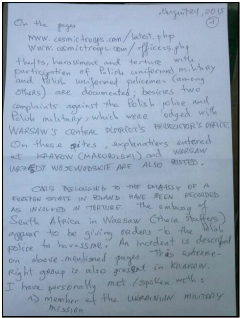 August 4, 2015
①
On the pages
www.cosmictroops.com/latest.php
www.cosmictroops.com/officers.php
thefts, harassment and torture with
participation of Polish uniformed military
and Polish uniformed policemen (among
others) are documented; besides two
complaints against the Polish police and
Polish military, which were lodged with
WARSAW'S CENTRAL DISTRICT'S PROSECUTOR'S OFFICE
On these sites, explanations entered
at KRAKOW (MAKOWSKI) and WARSAW
URZĄD WOJEWÓDZKI ARE ALSO POSTED.
CARS BELONGING TO THE EMBASSY OF A
FOREIGN STATE IN POLAND HAVE BEEN RECORDED
AS INVOLVED IN TORTURE. The embassy of
South Africa in Warsaw
appear to be giving orders to the Polish
police to harass me. An incident is described
on above-mentioned pages. This extreme-
right group is also present in KRAKOW.
I have personally met / spoken with:
1) member of the UKRAINIAN MILITARY
mission